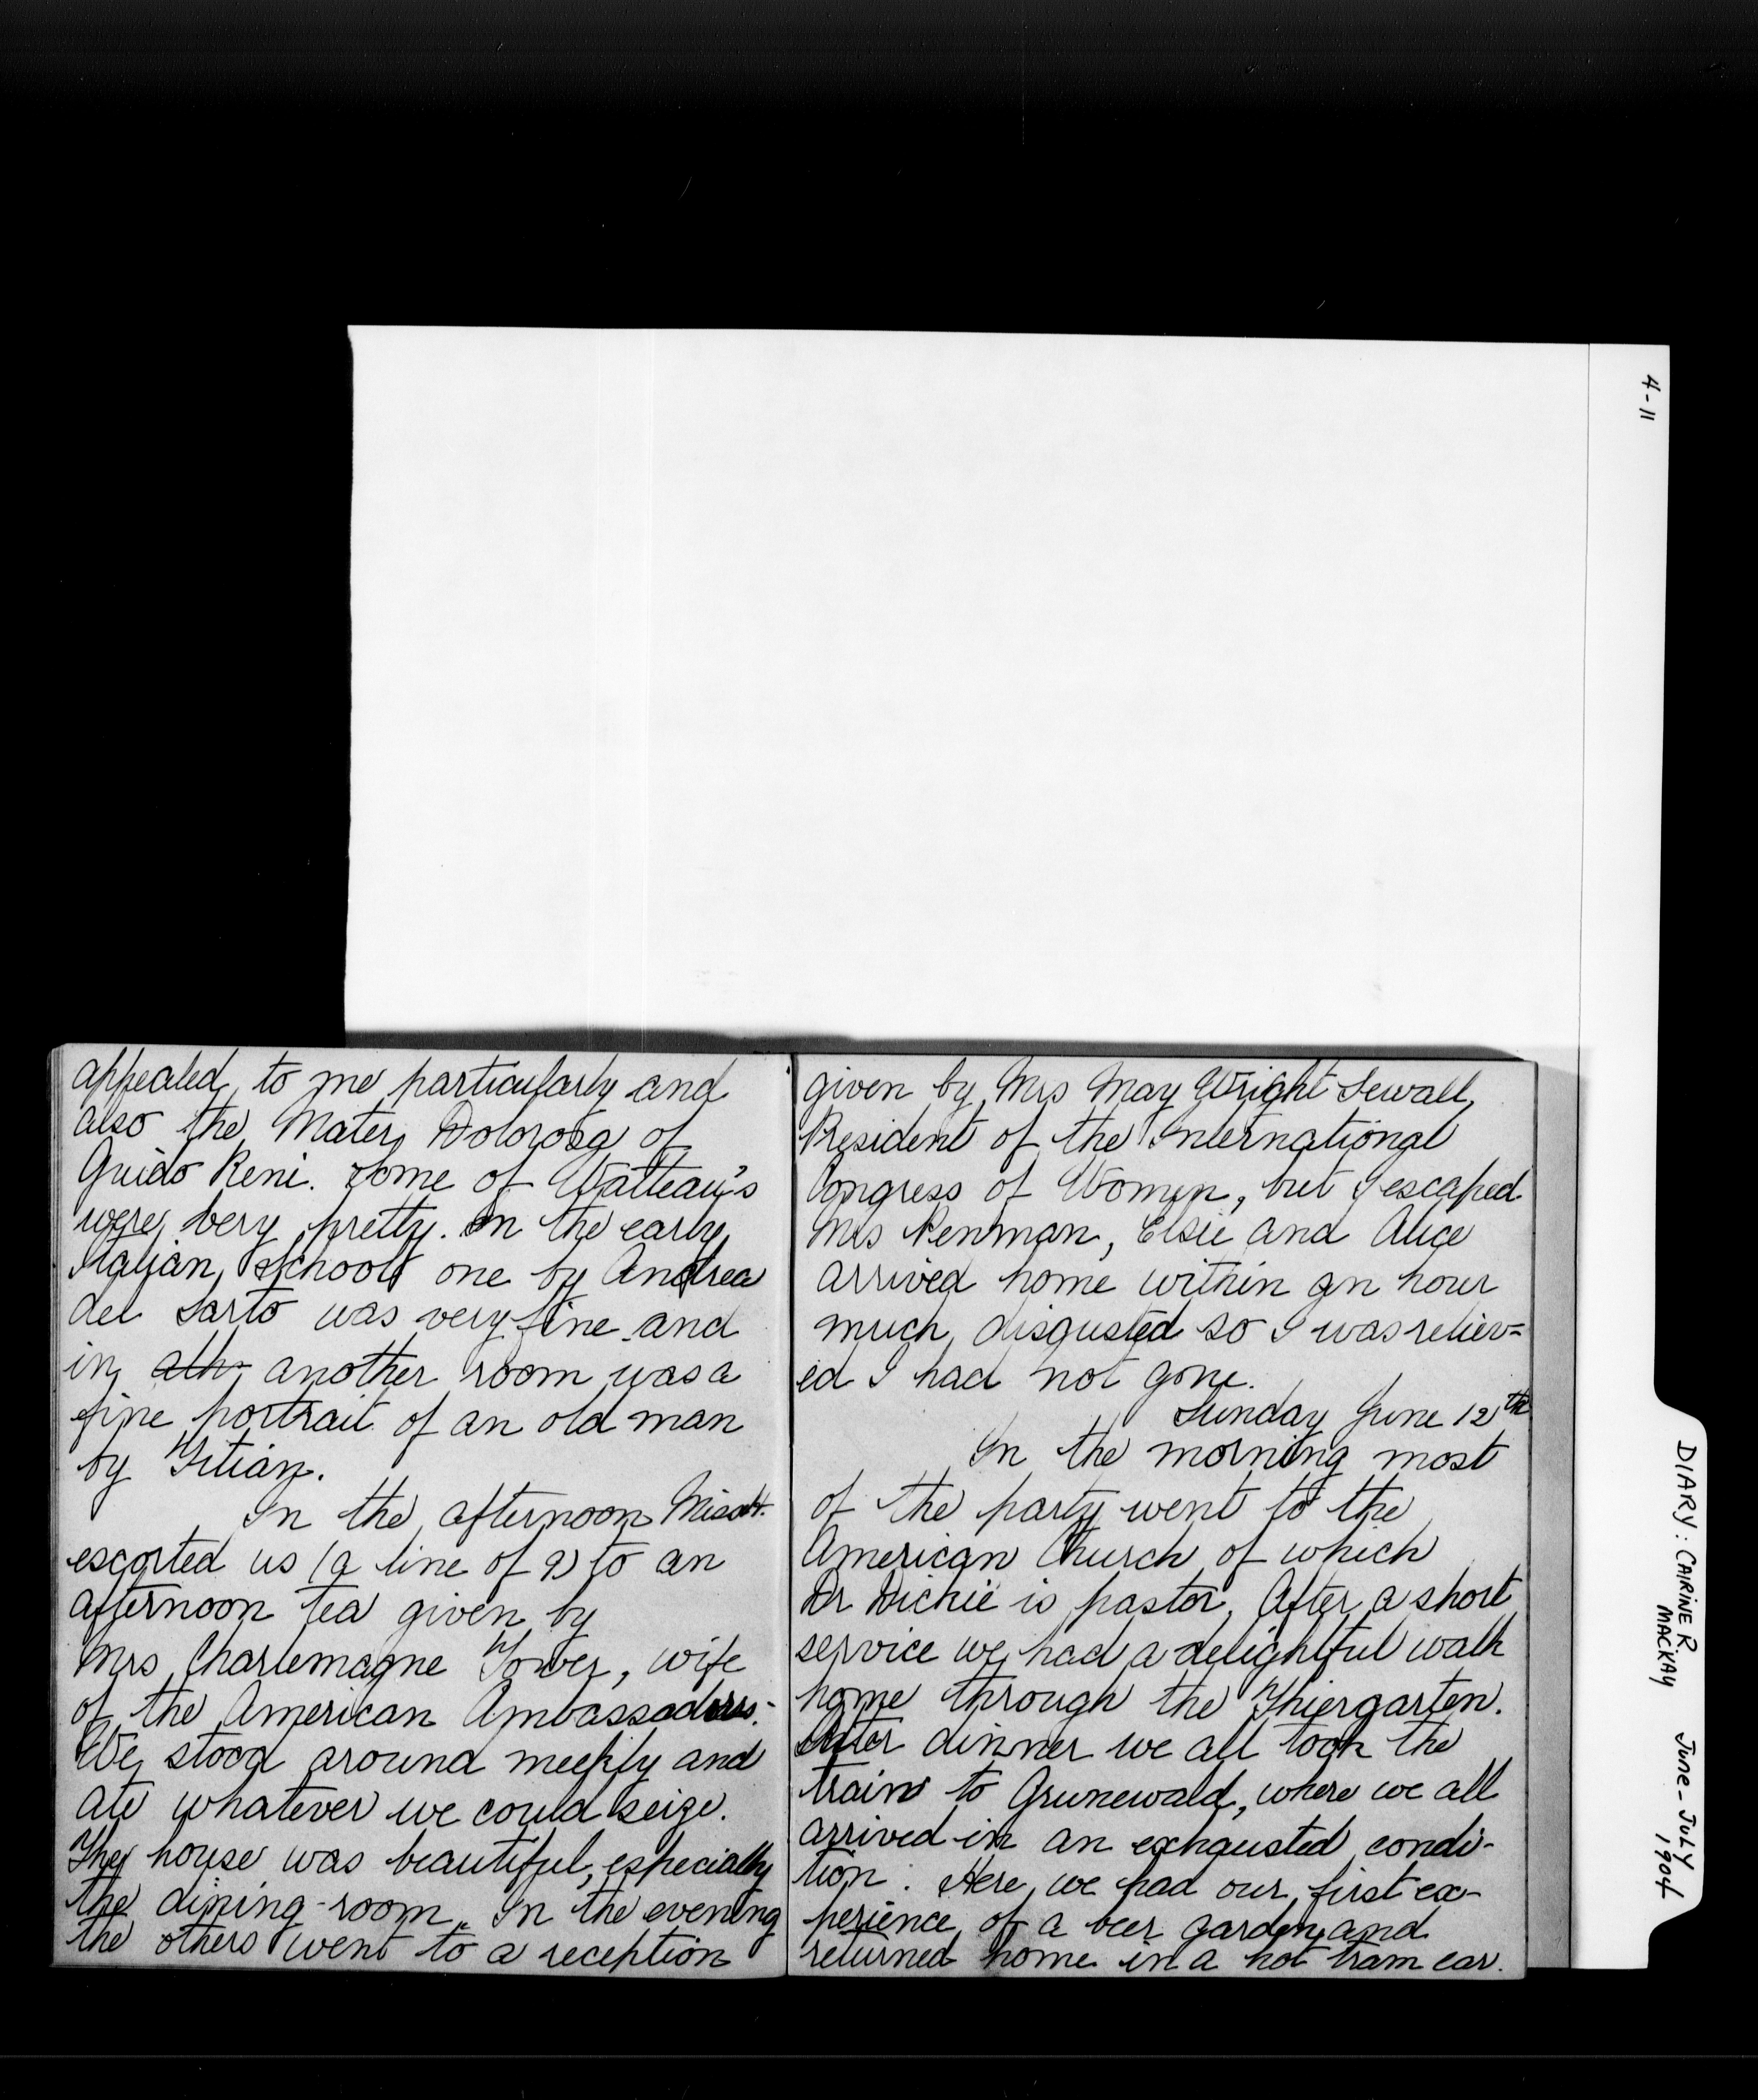 appealed to me particularly and
also the Mater Dolorosa of
Guido Reni. Some of Watteau's
were very pretty. In the early
Italian School one by Andrea
del Sarto was very fine and
in ath another room was a
fine portrait of an old man
by Titian.
In the afternoon Miss H.
escorted us (a line of 9) to an
afternoon tea given by
Mrs Charlemagne Tower, wife
of the American Ambassador.
We stood around meekly and
ate whatever we could seize.
The house was beautiful, especially
the dining-room. In the evening
the others went to a reception
given by Mrs May Wright Sewall,
President of the International
Congress of Women, but I escaped
Mrs Penman, Elsie and Alice
arrived home within an hour
much disgusted so I was reliev=
ed I had not gone.
Sunday June 12th
In the morning most
of the party went to the
American Church of which
Dr Dickie is pastor. After a short
service we had a delightful walk
home through the Thiergarten.
After dinner we all took the
train to Grunewald, where we all
arrived in an exhausted condi-
tion. Here we had our first ex-
perience of a beer garden and
returned home in a hot tram car.
4-11
DIARY: CAIRINE R MACKAY
June - JULY 1904